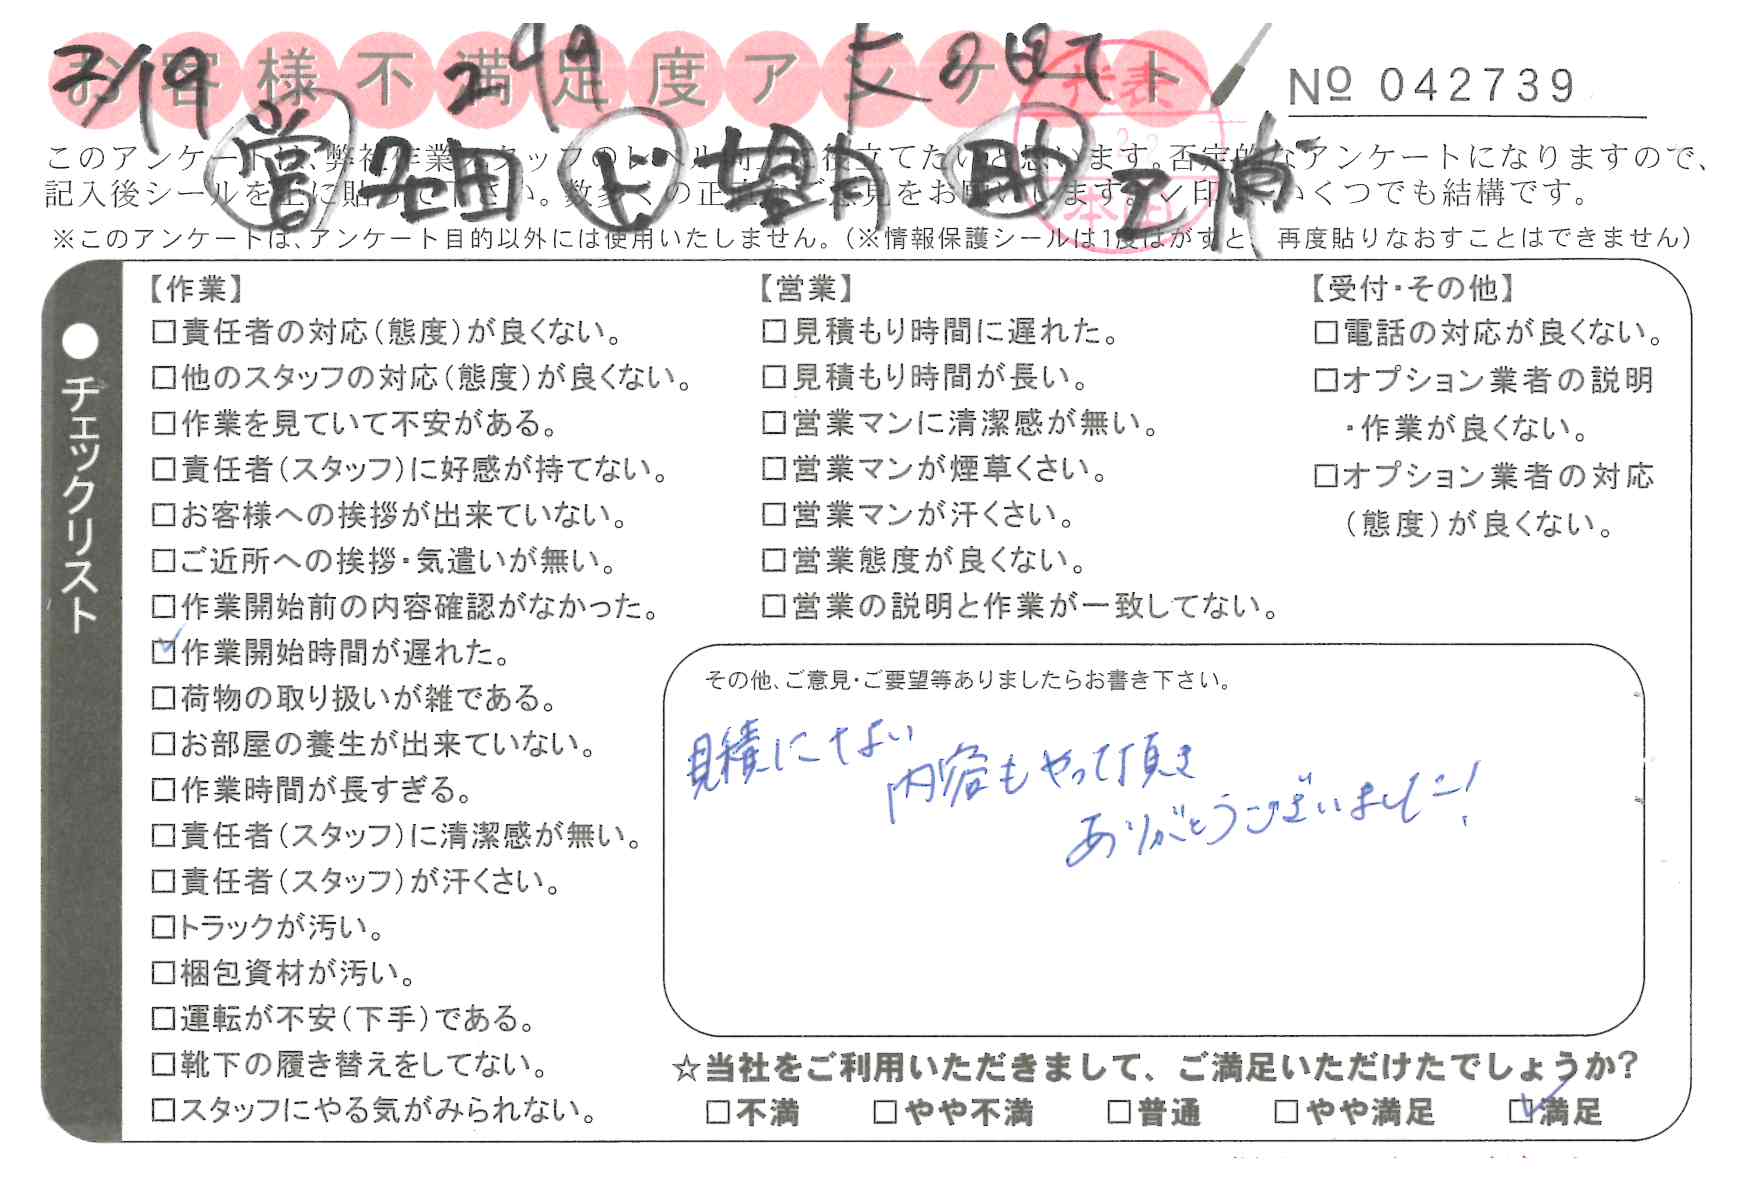 お客様不満足度アンケート
№ 042739
3/19 249
営 池田 上 望月 助 三浦
このアンケートは、弊社作業スタッフのレベル向上に役立てたいと思います。否定的なアンケートになりますので、
記入後シールを上に貼って下さい。数多くの正直なご意見をお願いします。✓印は、いくつでも結構です。
※このアンケートは、アンケート目的以外には使用いたしません。（※情報保護シールは1度はがすと、再度貼りなおすことはできません）
●チェックリスト
【作業】
□責任者の対応（態度）が良くない。
□他のスタッフの対応（態度）が良くない。
□作業を見ていて不安がある。
□責任者（スタッフ）に好感が持てない。
□お客様への挨拶が出来ていない。
□ご近所への挨拶・気遣いが無い。
□作業開始前の内容確認がなかった。
☑作業開始時間が遅れた。
□荷物の取り扱いが雑である。
□お部屋の養生が出来ていない。
□作業時間が長すぎる。
□責任者（スタッフ）に清潔感が無い。
□責任者（スタッフ）が汗くさい。
□トラックが汚い。
□梱包資材が汚い。
□運転が不安（下手）である。
□靴下の履き替えをしてない。
□スタッフにやる気がみられない。
【営業】
□見積もり時間に遅れた。
□見積もり時間が長い。
□営業マンに清潔感が無い。
□営業マンが煙草くさい。
□営業マンが汗くさい。
□営業態度が良くない。
□営業の説明と作業が一致してない。
【受付・その他】
□電話の対応が良くない。
□オプション業者の説明
・作業が良くない。
□オプション業者の対応
（態度）が良くない。
その他、ご意見・ご要望等ありましたらお書き下さい。
見積にない
内容もやって頂き
ありがとうございました！
☆当社をご利用いただきまして、ご満足いただけたでしょうか？
□不満 □やや不満 □普通 □やや満足 ☑満足